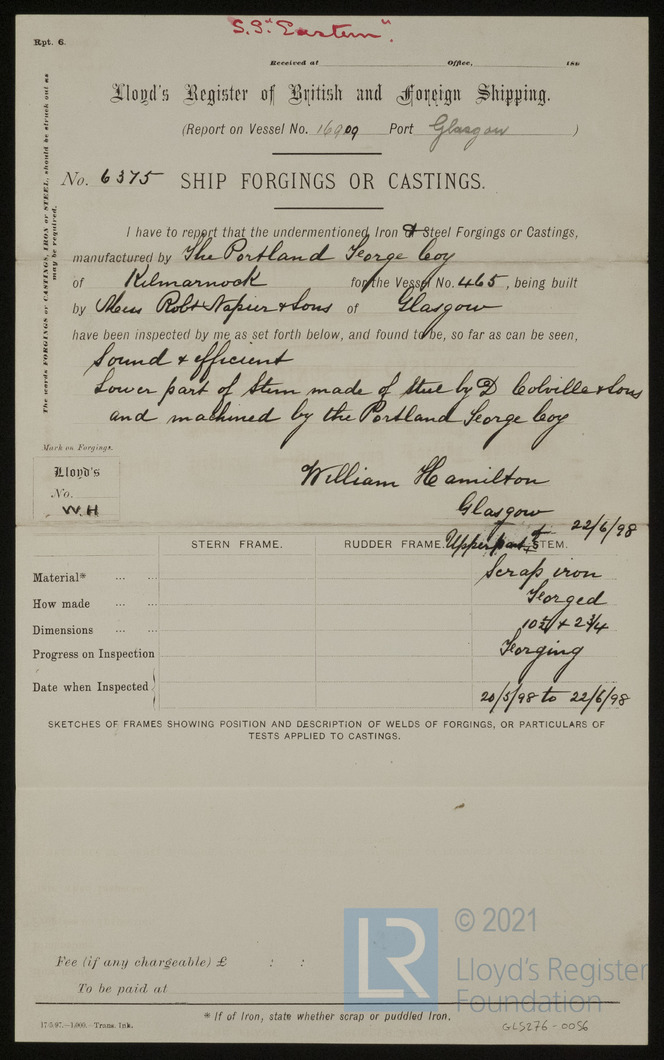 S.S. "Eastern".
Rpt. 6.
Received at Office, 189
Lloyd's Register of British and Foreign Shipping.
(Report on Vessel No. 16909 Port Glasgow )
No. 6375 SHIP FORGINGS OR CASTINGS.
The words FORGINGS or CASTINGS, IRON or STEEL, should be struck out as
may be required.
I have to report that the undermentioned Iron & Steel Forgings or Castings,
manufactured by The Portland Forge Coy
of Kilmarnock for the Vessel No. 465, being built
by Mess Robt Napier & Sons of Glasgow
have been inspected by me as set forth below, and found to be, so far as can be seen,
Sound & efficient
Lower part of Stem made of steel by D Colville & Sons
and machined by the Portland Forge Coy
Mark on Forgings.
Lloyd's
No.
W.H
William Hamilton
Glasgow
22/6/98
STERN FRAME. RUDDER FRAME. Upper part of STEM.
Material* ... ... Scrap iron
How made ... ... Forged
Dimensions ... ... 10½ × 2¾
Progress on Inspection Forging
Date when Inspected 20/5/98 to 22/6/98
SKETCHES OF FRAMES SHOWING POSITION AND DESCRIPTION OF WELDS OF FORGINGS, OR PARTICULARS OF
TESTS APPLIED TO CASTINGS.
Fee (if any chargeable) £ : :
To be paid at
* If of Iron, state whether scrap or puddled Iron.
17/5/97.—1,000.—Trans. Ink.
LR
© 2021
Lloyd's Register
Foundation
GLS276-0056